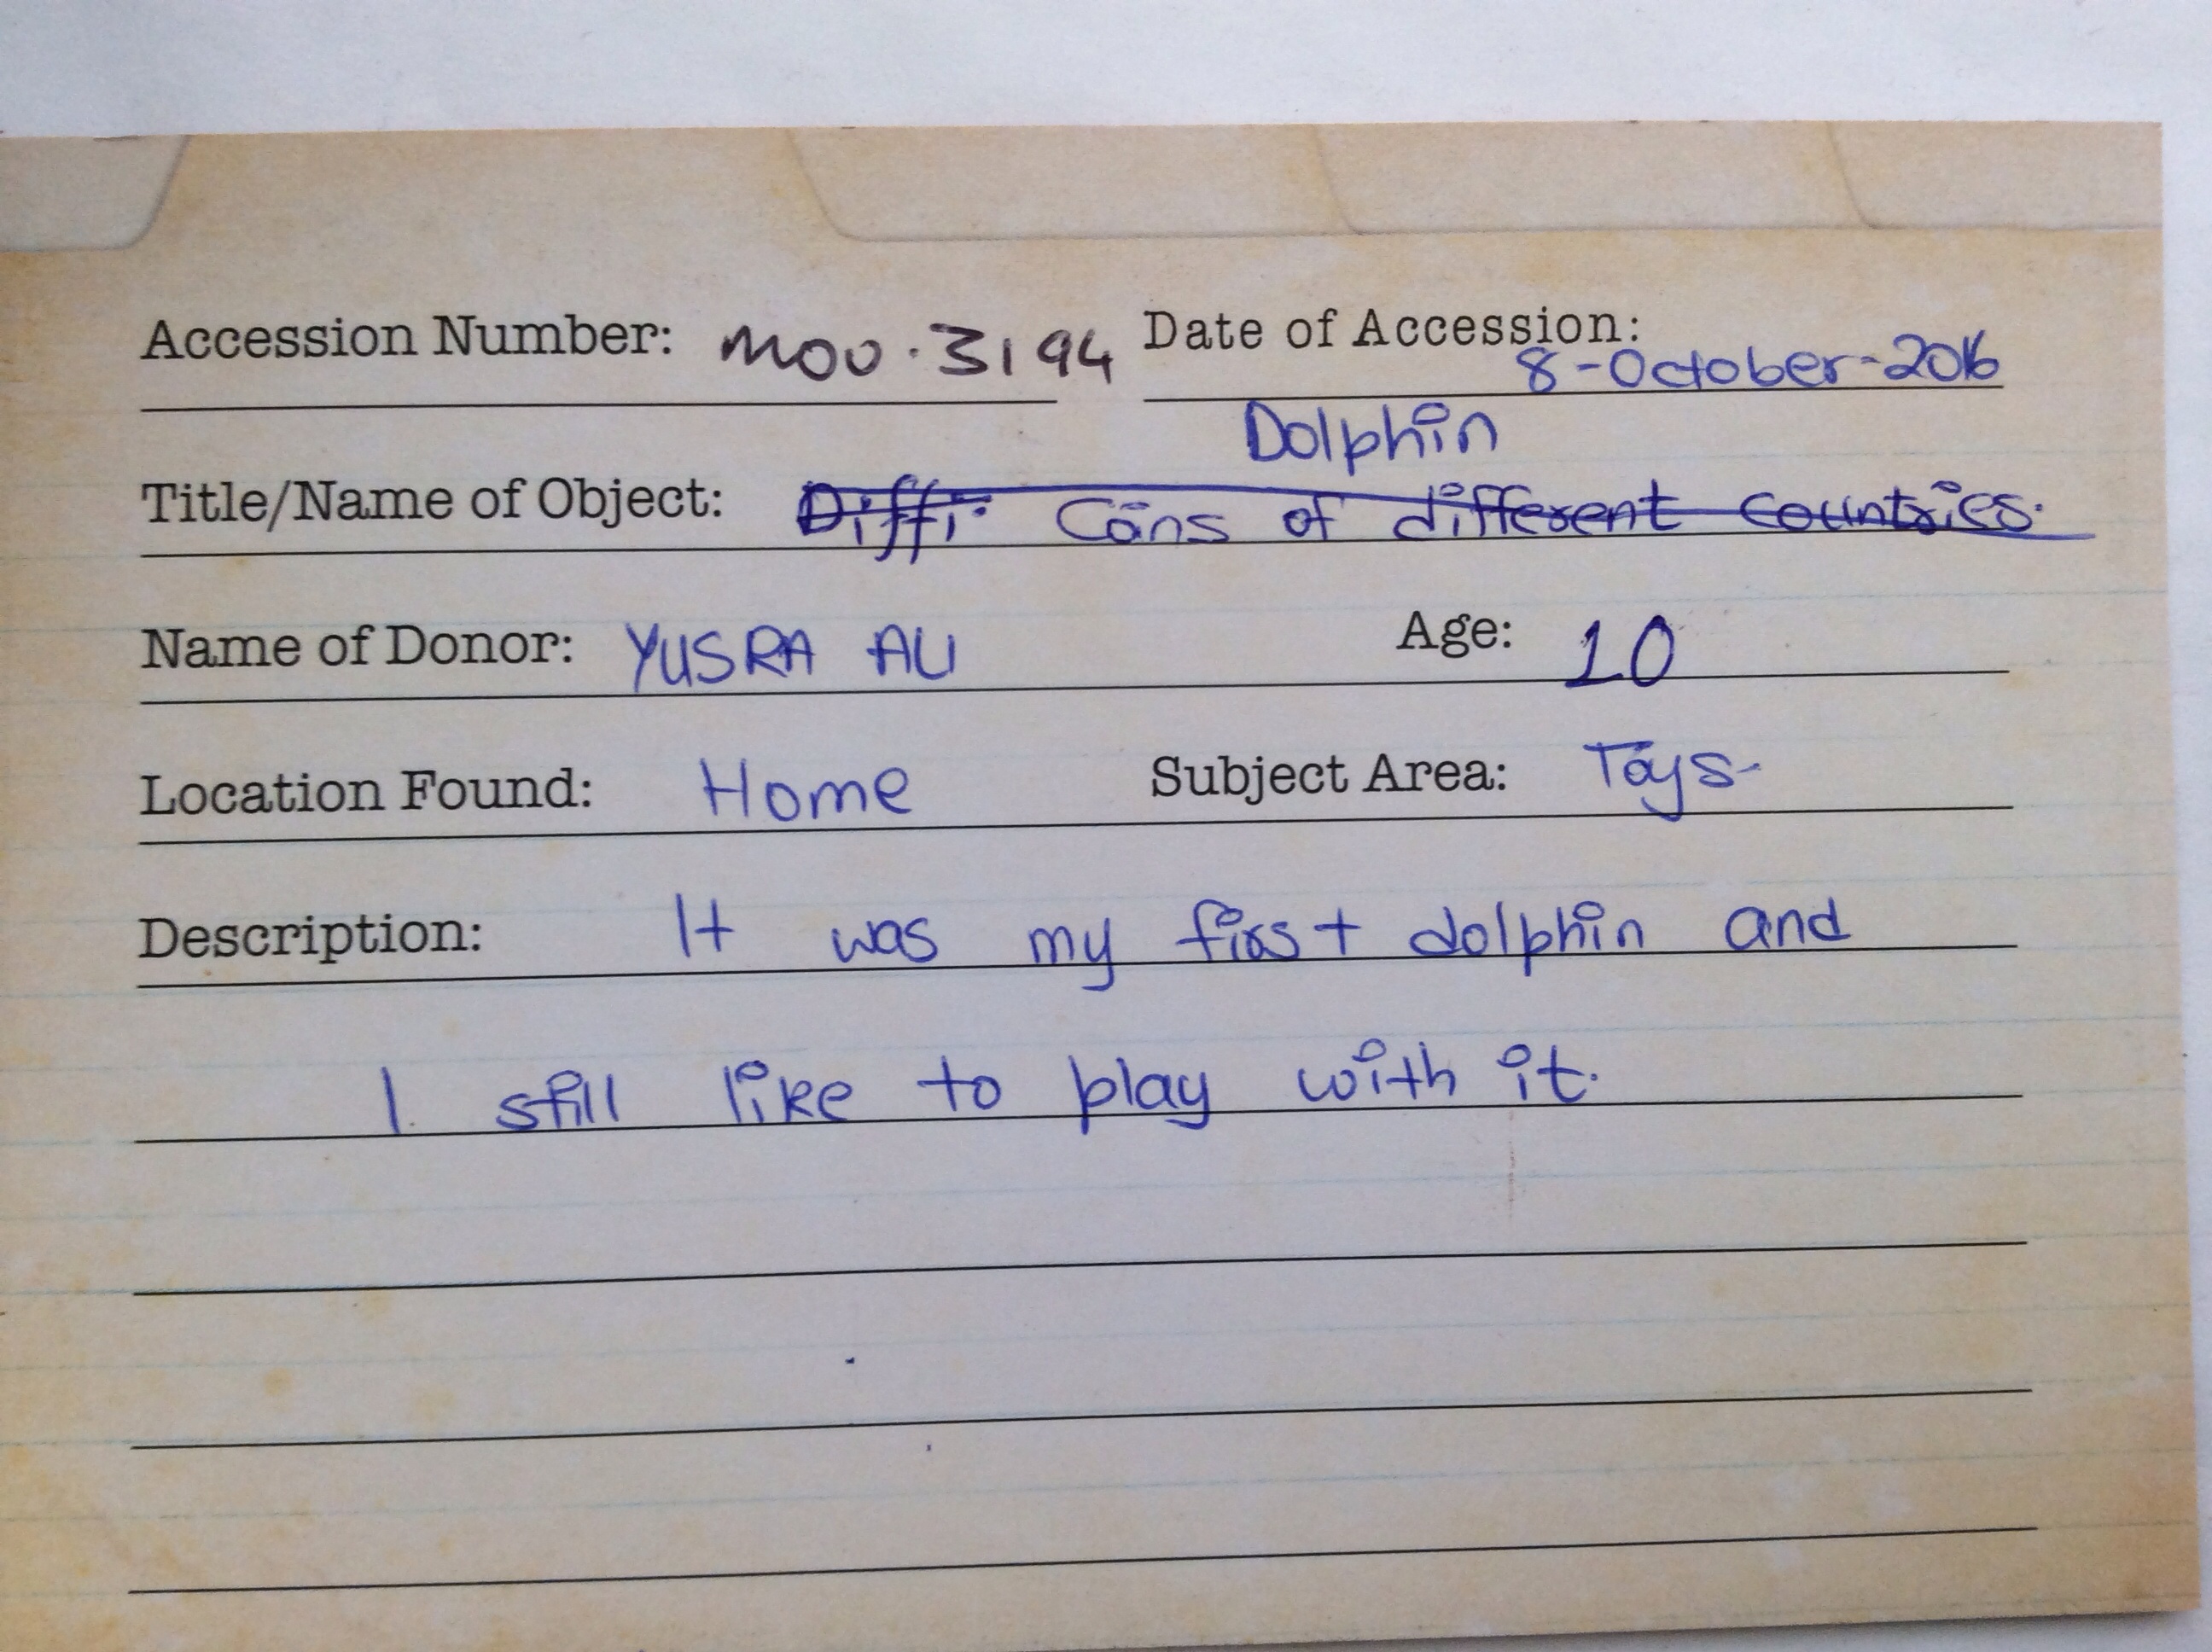 Accession Number: MOU.3194 Date of Accession: 8-October-2016
Dolphin
Title/Name of Object: Diffr Coins of different countries.
Name of Donor: YUSRA ALI Age: 10
Location Found: Home Subject Area: Toys
Description: It was my first dolphin and
I still like to play with it.